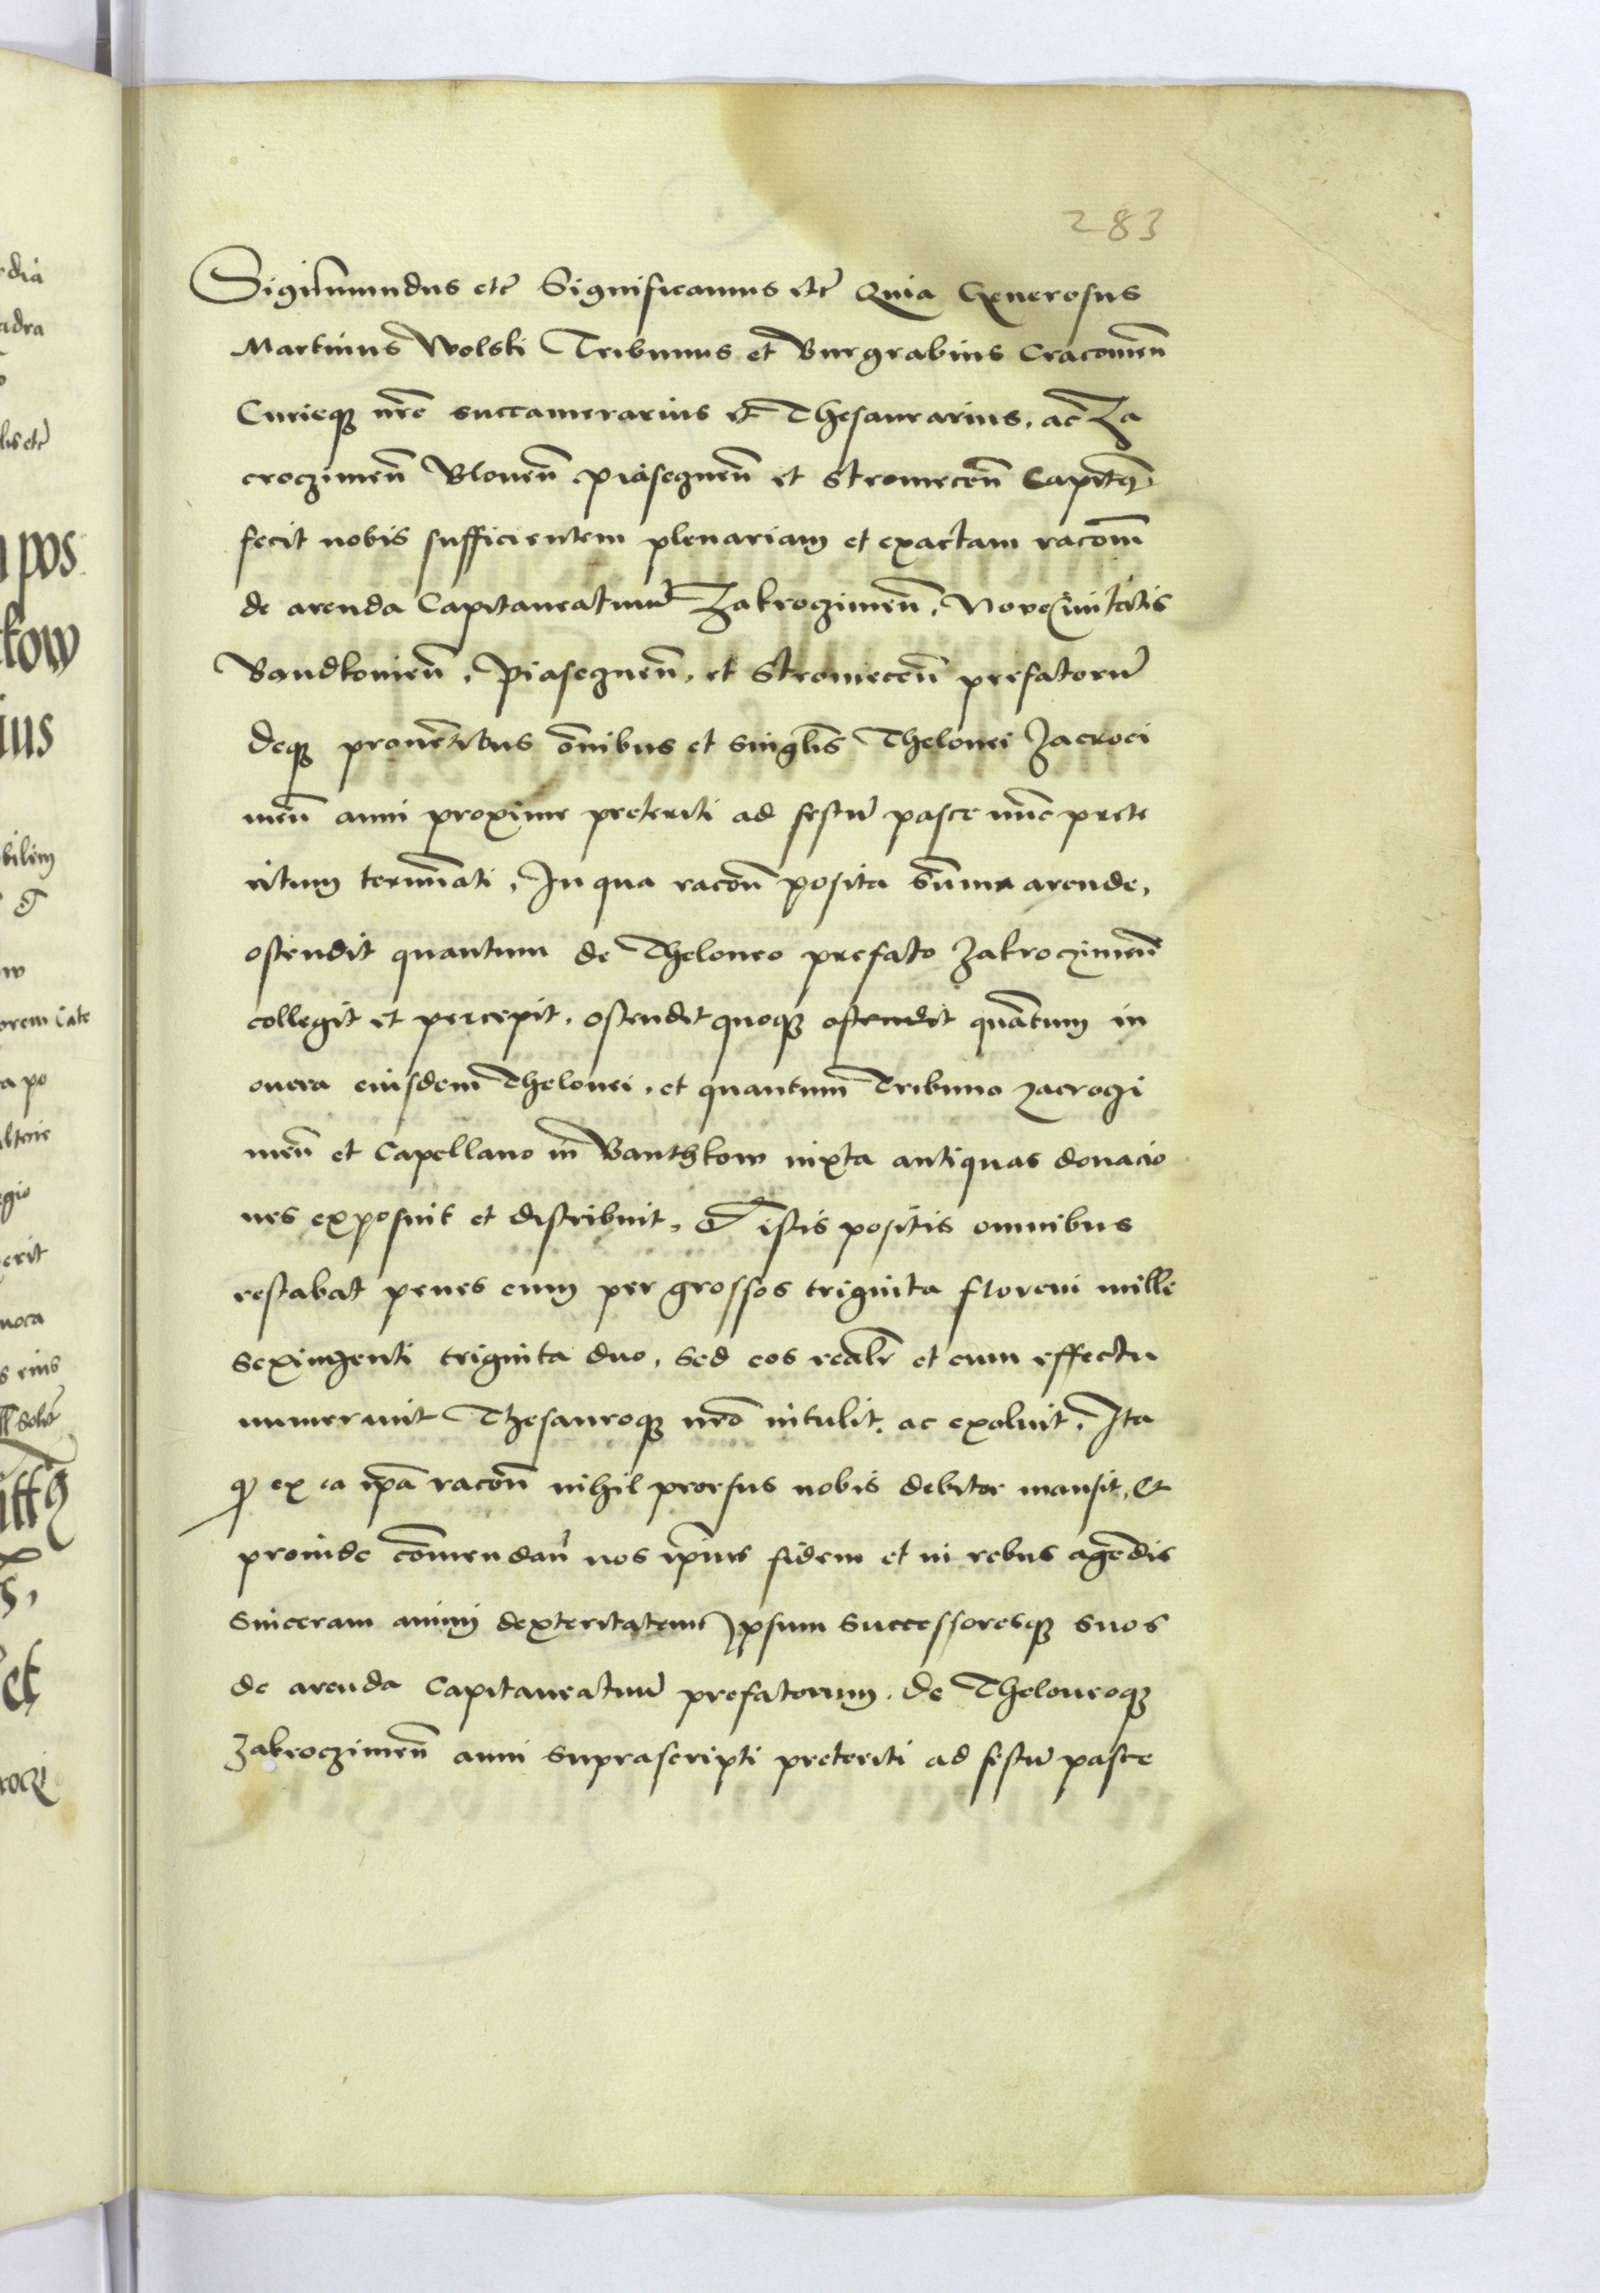 283
Sigismundus etc Significamus etc Quia Generosus
Martinus Wolski Tribunus et Burgrabius Cracouien̄
Curieqꝫ nr̄e succamerarius et Thesaurarius, ac Za
croczimen̄ Blonen̄ piasecznen̄ et Stromecen̄ Capitꝫ
fecit nobis sufficientem plenariam et exactam racōm
de arenda Capitaneatuū Zakroczimen̄, Noveciuitatis
Bandkouien̄, Piasecznen̄, et Stromecen̄ prefatorū
deqꝫ prouētibus ōnibus et singl̄is Thelonei Zacroci
men̄ anni proxime preteriti ad festū pasce nūc prete
ritum termīnati, In qua racōn̄ posita sūma arende,
ostendit quantum de Theloneo prefato Zakroczimen̄
collegit et percepit, ostendit quoqꝫ ostendit quātum in
onera eiusdem Thelonei, et quantum Tribuno zacroczi
men̄ et Capellano in Banthkow iuxta antiquas donacio
nes exposuit et distribuit, Et istis positis omnibus
restabat penes eum per grossos triginta floreni mille
sexingenti triginta duo, sed eos realr̄ et cum effectu
numerauit Thesauroqꝫ nr̄o intulit, ac exoluit, Ita
ꝙ ex ea ip̄a racōn̄ nihil prorsus nobis debitor mansit, Et
proinde cōmendan̄ nos ip̄ius fidem et in rebus agēdis
sinceram animi dexteritatem Ipsum Successoresqꝫ suos
de arenda Capitaneatuū prefatorum, de Theloneoqꝫ
Zakroczimen̄ anni suprascripti preteriti ad festū pasce